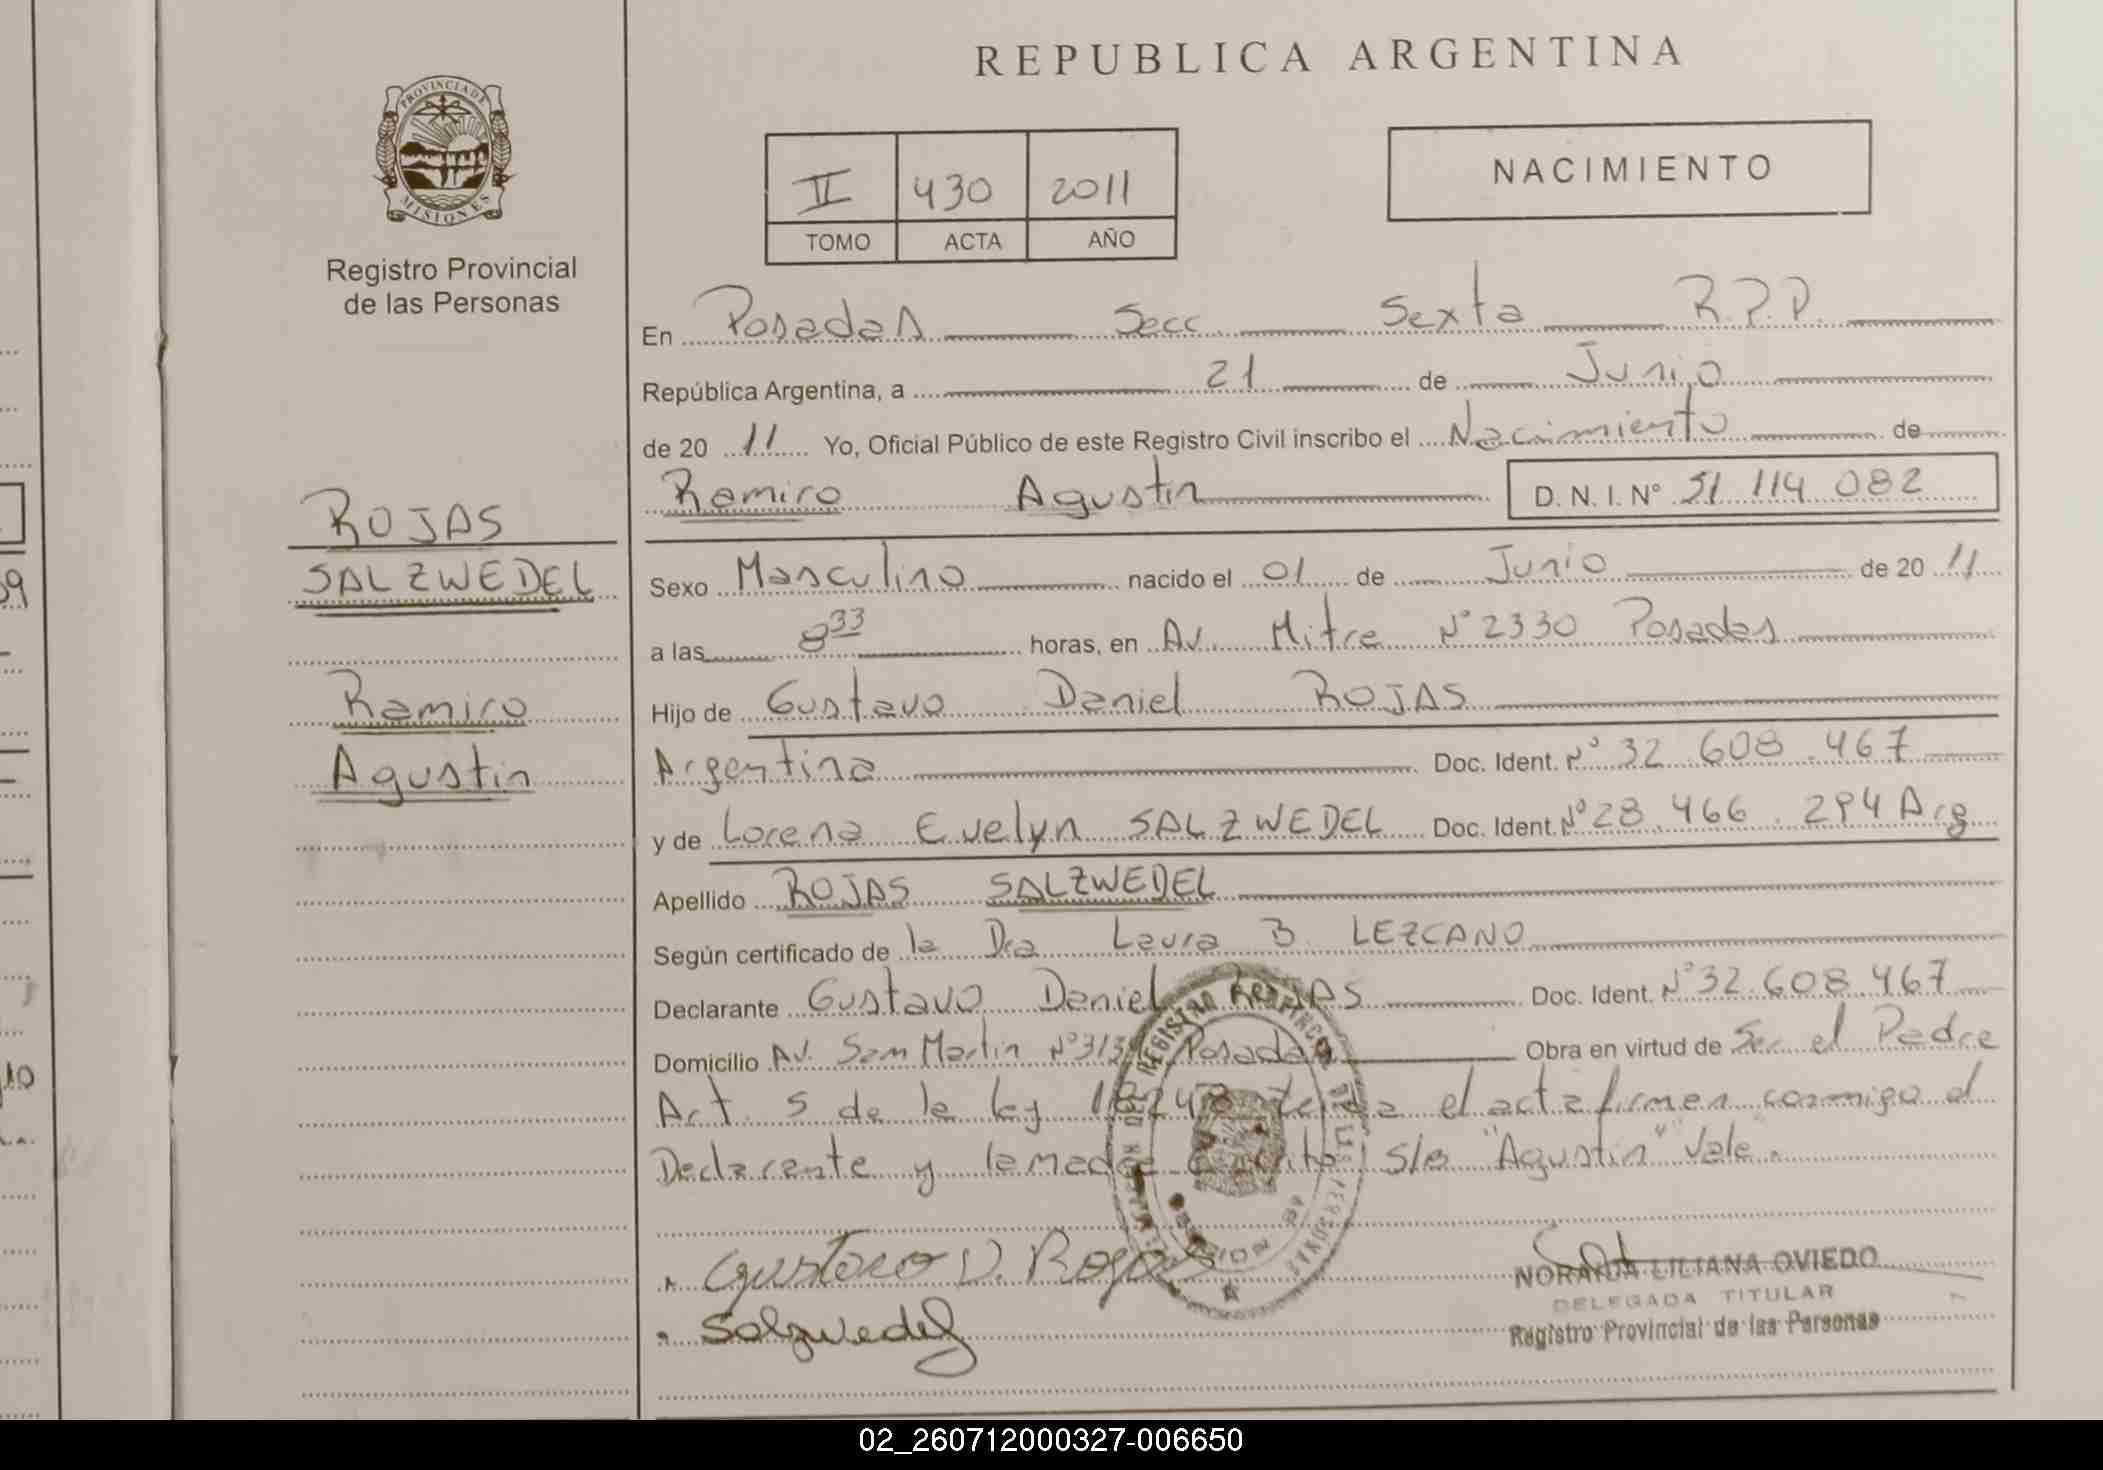 REPUBLICA ARGENTINA
PROVINCIA DE
MISIONES
Registro Provincial
de las Personas
II 430 2011
TOMO ACTA AÑO
NACIMIENTO
En Posadas Secc. Sexta R.P.P.
República Argentina, a 21 de Junio
de 20 11 Yo, Oficial Público de este Registro Civil inscribo el Nacimiento de
Ramiro Agustin D. N. I. Nº 51 114 082
ROJAS
SALZWEDEL
Ramiro
Agustin
Sexo Masculino nacido el 01 de Junio de 20 11
a las 8 33 horas, en Av. Mitre Nº 2330 Posadas
Hijo de Gustavo Daniel ROJAS
Argentina Doc. Ident. Nº 32.608.467
y de Lorena Evelyn SALZWEDEL Doc. Ident. Nº 28.466.294 Arg
Apellido ROJAS SALZWEDEL
Según certificado de la Dra Laura B. LEZCANO
Declarante Gustavo Daniel ROJAS Doc. Ident. Nº 32.608.467
Domicilio Av. San Martin Nº Posadas Obra en virtud de Ser el Padre
Art. 5 de la ley el acta firman conmigo el
Declarante y la madre s/b "Agustin" Vale.
Gustavo D. Rojas
Salzwedel
LILIANA OVIEDO
DELEGADA TITULAR
Registro Provincial de las Personas
10
02_260712000327-006650